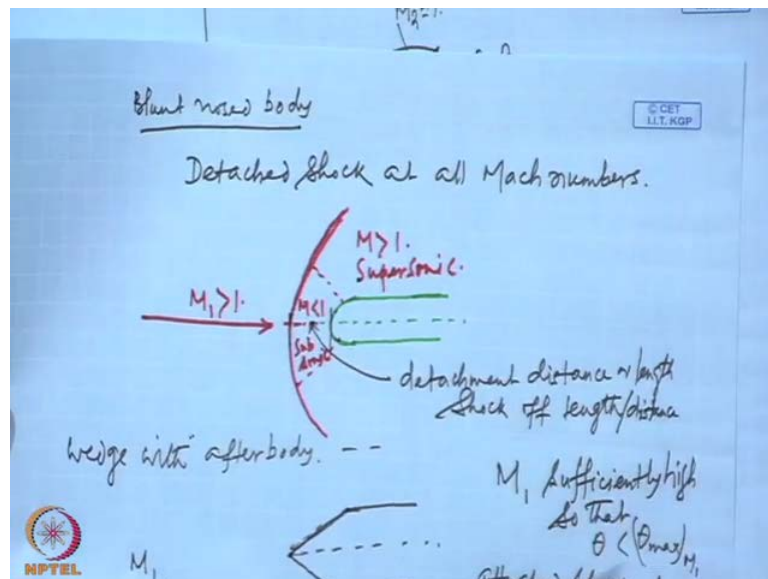 M₂=1.
© CET
I.I.T. KGP
Blunt nosed body
Detached Shock at all Mach numbers.
M₁>1.
M>1.
Supersonic.
M<1
Sub
Sonic
detachment distance or length
Shock off length/distance
wedge with afterbody. --
M₁ Sufficiently high
So that
θ < (θmax)M₁
M₁
NPTEL